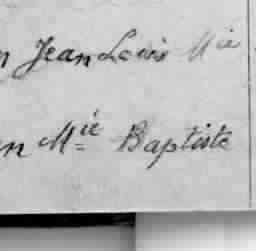 n Jean Louis Mie
en Mie Baptiste